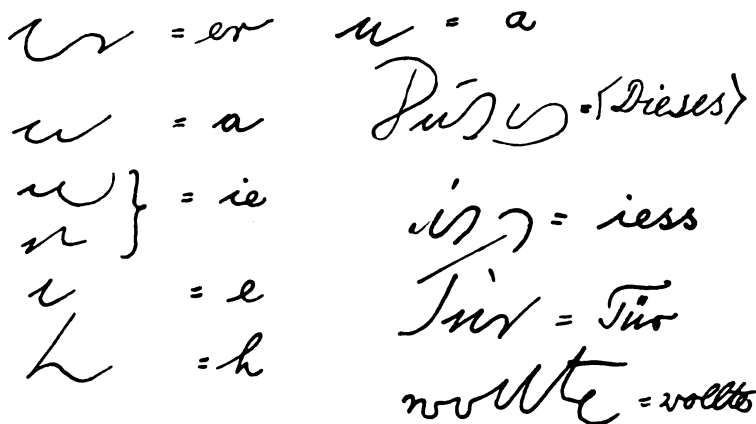 = er
= a
= a
= ie
= e
= h
= <Dieses>
= iess
Tür = Tür
wollte = wollte